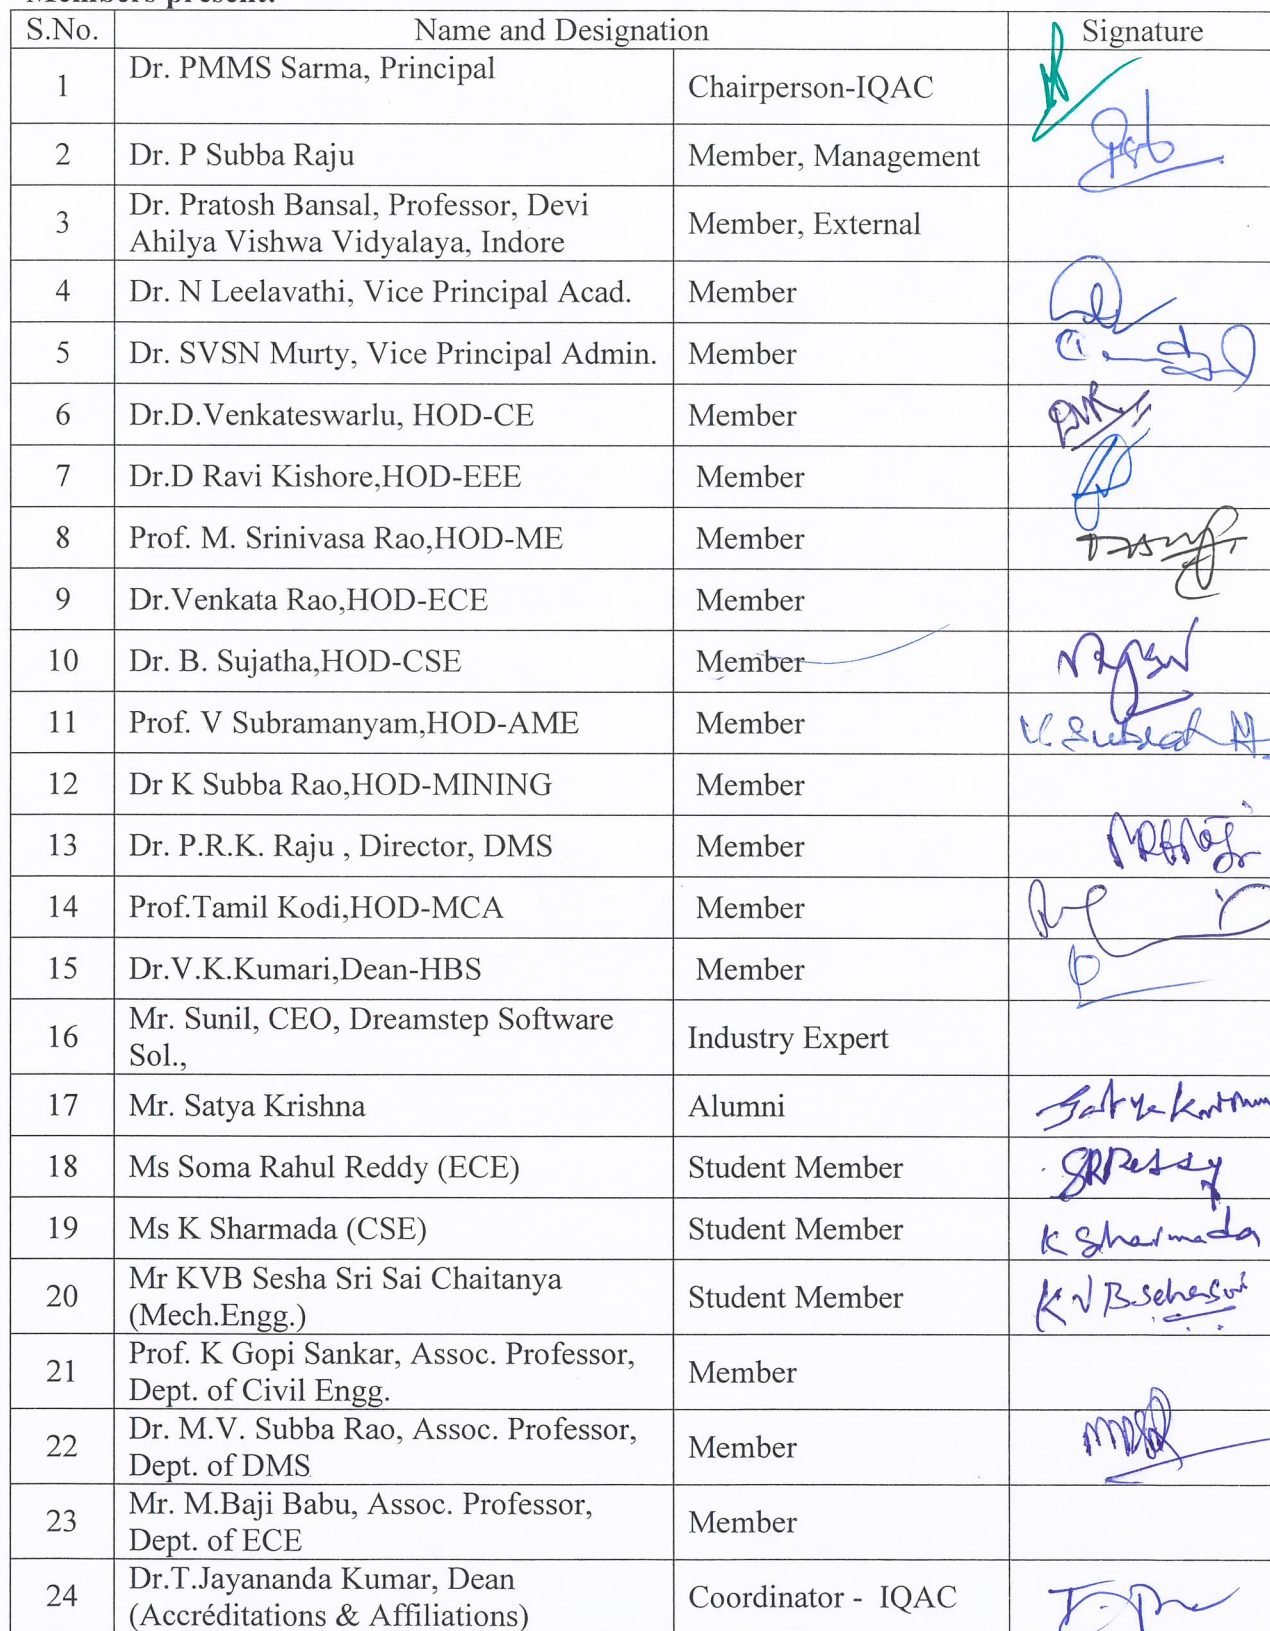 Members present:
S.No. Name and Designation Signature
1 Dr. PMMS Sarma, Principal Chairperson-IQAC
2 Dr. P Subba Raju Member, Management
3 Dr. Pratosh Bansal, Professor, Devi
Ahilya Vishwa Vidyalaya, Indore Member, External
4 Dr. N Leelavathi, Vice Principal Acad. Member
5 Dr. SVSN Murty, Vice Principal Admin. Member
6 Dr.D.Venkateswarlu, HOD-CE Member
7 Dr.D Ravi Kishore,HOD-EEE Member
8 Prof. M. Srinivasa Rao,HOD-ME Member
9 Dr.Venkata Rao,HOD-ECE Member
10 Dr. B. Sujatha,HOD-CSE Member
11 Prof. V Subramanyam,HOD-AME Member
12 Dr K Subba Rao,HOD-MINING Member
13 Dr. P.R.K. Raju , Director, DMS Member
14 Prof.Tamil Kodi,HOD-MCA Member
15 Dr.V.K.Kumari,Dean-HBS Member
16 Mr. Sunil, CEO, Dreamstep Software
Sol., Industry Expert
17 Mr. Satya Krishna Alumni
18 Ms Soma Rahul Reddy (ECE) Student Member SRReddy
19 Ms K Sharmada (CSE) Student Member K Sharmada
20 Mr KVB Sesha Sri Sai Chaitanya
(Mech.Engg.) Student Member
21 Prof. K Gopi Sankar, Assoc. Professor,
Dept. of Civil Engg. Member
22 Dr. M.V. Subba Rao, Assoc. Professor,
Dept. of DMS Member
23 Mr. M.Baji Babu, Assoc. Professor,
Dept. of ECE Member
24 Dr.T.Jayananda Kumar, Dean
(Accréditations & Affiliations) Coordinator - IQAC